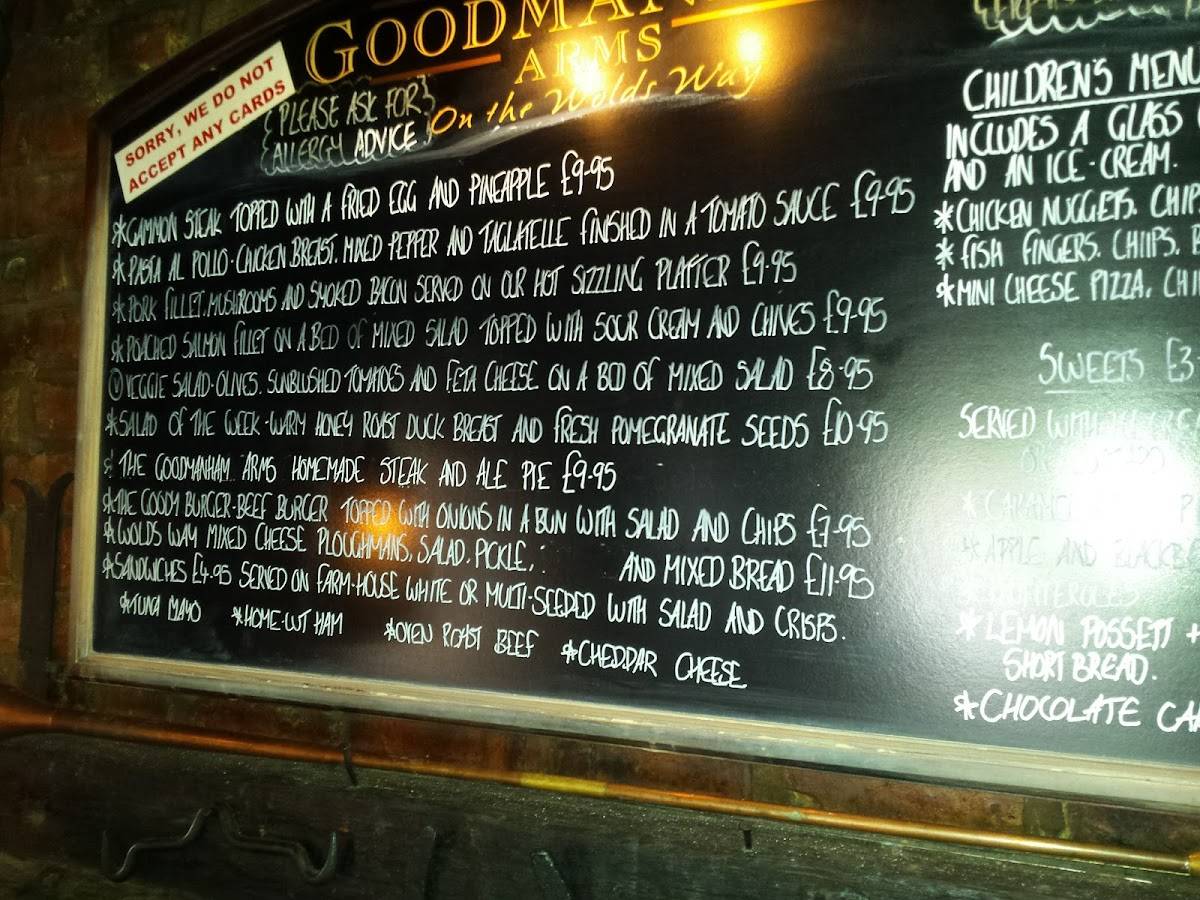 GOODMAN
ARMS
On the Wolds Way
SORRY, WE DO NOT
ACCEPT ANY CARDS
PLEASE ASK FOR
ALLERGY ADVICE
*GAMMON STEAK TOPPED WITH A FRIED EGG AND PINEAPPLE £9-95
*PASTA AL POLLO-CHICKEN BREAST, MIXED PEPPER AND TAGLATELLE FINISHED IN A TOMATO SAUCE £9-95
*PORK FILLET, MUSHROOMS AND SMOKED BACON SERVED ON OUR HOT SIZZLING PLATTER £9-95
*POACHED SALMON FILLET ON A BED OF MIXED SALAD TOPPED WITH SOUR CREAM AND CHIVES £9-95
Ⓥ VEGGIE SALAD-OLIVES, SUNBLUSHED TOMATOES AND FETA CHEESE ON A BED OF MIXED SALAD £8-95
*SALAD OF THE WEEK-WARM HONEY ROAST DUCK BREAST AND FRESH POMEGRANATE SEEDS £10-95
* THE GOODMANHAM ARMS HOMEMADE STEAK AND ALE PIE £9-95
*THE GOODY BURGER-BEEF BURGER TOPPED WITH ONIONS IN A BUN WITH SALAD AND CHIPS £7-95
*WOLDS WAY MIXED CHEESE PLOUGHMANS, SALAD, PICKLE, AND MIXED BREAD £11-95
*SANDWICHES £4-95 SERVED ON FARM-HOUSE WHITE OR MULTI-SEEDED WITH SALAD AND CRISPS.
*TUNA MAYO *HOME-CUT HAM *OVEN ROAST BEEF *CHEDDAR CHEESE
CHILDREN'S MENU
INCLUDES A GLASS
AND AN ICE-CREAM.
*CHICKEN NUGGETS, CHIP
*FISH FINGERS, CHIIPS,
*MINI CHEESE PIZZA, CHI
SWEETS £3
SERVED WITH
*CARAME
*APPLE AND BLACKB
*LEMON POSSETT +
SHORTBREAD.
*CHOCOLATE